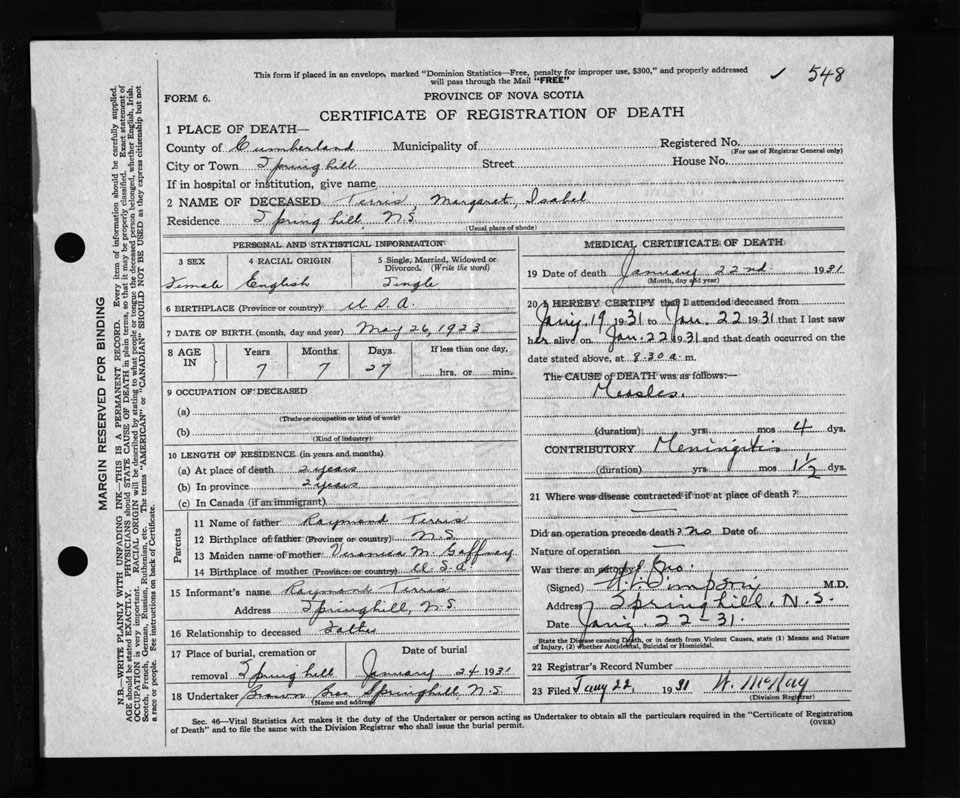 This form if placed in an envelope, marked "Dominion Statistics—Free, penalty for improper use, $300," and properly addressed
will pass through the Mail "FREE"
✓ 548
FORM 6.
PROVINCE OF NOVA SCOTIA
CERTIFICATE OF REGISTRATION OF DEATH
1 PLACE OF DEATH—
County of Cumberland Municipality of Registered No.
(For use of Registrar General only)
City or Town Springhill Street House No.
If in hospital or institution, give name
2 NAME OF DECEASED Terris, Margaret, Isabel
Residence Springhill, N.S.
(Usual place of abode)
PERSONAL AND STATISTICAL INFORMATION
3 SEX 4 RACIAL ORIGIN 5 Single, Married, Widowed or
Divorced. (Write the word)
Female English Single
6 BIRTHPLACE (Province or country) U.S.A.
7 DATE OF BIRTH. (month, day and year) May 26, 1923
8 AGE IN Years Months Days If less than one day,
7 7 27 hrs. or min.
9 OCCUPATION OF DECEASED
(a)
(Trade or occupation or kind of work)
(b)
(Kind of industry)
10 LENGTH OF RESIDENCE (in years and months)
(a) At place of death 2 years
(b) In province 2 years
(c) In Canada (if an immigrant)
Parents
11 Name of father Raymond Terris
12 Birthplace of father (Province or country) N.S.
13 Maiden name of mother Veronica M. Gaffney
14 Birthplace of mother (Province or country) U.S.A.
15 Informant's name Raymond Terris
Address Springhill, N.S.
16 Relationship to deceased Father
17 Place of burial, cremation or Date of burial
removal Springhill January 24 1931
18 Undertaker Brown Bros Springhill N.S.
(Name and address)
MEDICAL CERTIFICATE OF DEATH
19 Date of death January 22nd. 1931
(Month, day and year)
20 I HEREBY CERTIFY that I attended deceased from
Jany. 19 1931 to Jan. 22 1931 that I last saw
her alive on Jan. 22 1931 and that death occurred on the
date stated above, at 8.30 a. m.
The CAUSE of DEATH was as follows:—
Measles.
(duration) yrs. mos 4 dys.
CONTRIBUTORY Meningitis
(duration) yrs. mos 1½ dys.
21 Where was disease contracted if not at place of death?
Did an operation precede death? no Date of
Nature of operation
Was there an autopsy? No.
(Signed) Simpson M.D.
Address Springhill, N.S.
Date Jany. 22-31.
State the Disease causing Death, or in death from Violent Causes, state (1) Means and Nature
of Injury, (2) whether Accidental, Suicidal or Homicidal.
22 Registrar's Record Number
23 Filed Jany 22, 1931 W. McKay
(Division Registrar)
Sec. 46—Vital Statistics Act makes it the duty of the Undertaker or person acting as Undertaker to obtain all the particulars required in the "Certificate of Registration
of Death" and to file the same with the Division Registrar who shall issue the burial permit. (OVER)
MARGIN RESERVED FOR BINDING
N.B.—WRITE PLAINLY WITH UNFADING INK—THIS IS A PERMANENT RECORD. Every item of information should be carefully supplied.
AGE should be stated EXACTLY. PHYSICIANS should STATE CAUSE OF DEATH in plain terms, so that it may be properly classified. Exact statement of
OCCUPATION is very important. RACIAL ORIGIN will be described by stating to what people or tongue the deceased person belonged, whether English, Irish,
Scotch, French, German, Russian, Ruthenian, etc. The terms "AMERICAN" or "CANADIAN" SHOULD NOT BE USED as they express citizenship but not
a race or people. See instructions on back of Certificate.